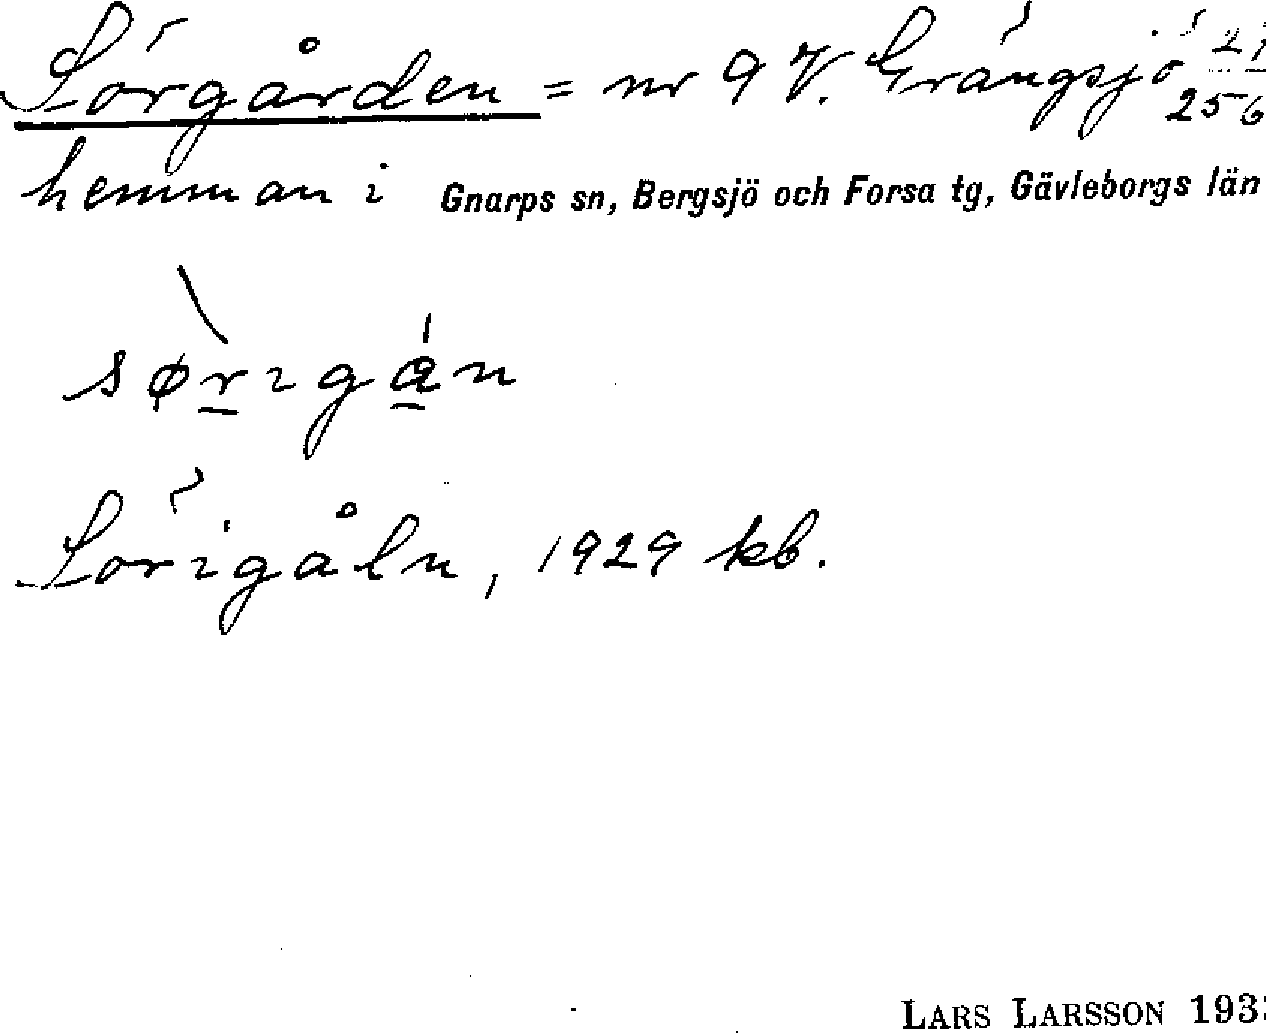 Sörgården = nr 9 V. Grängsjö 21
256
hemman i Gnarps sn, Bergsjö och Forsa tg, Gävleborgs län
sørıgån
Sörigåln, 1929 kb.
LARS LARSSON 193